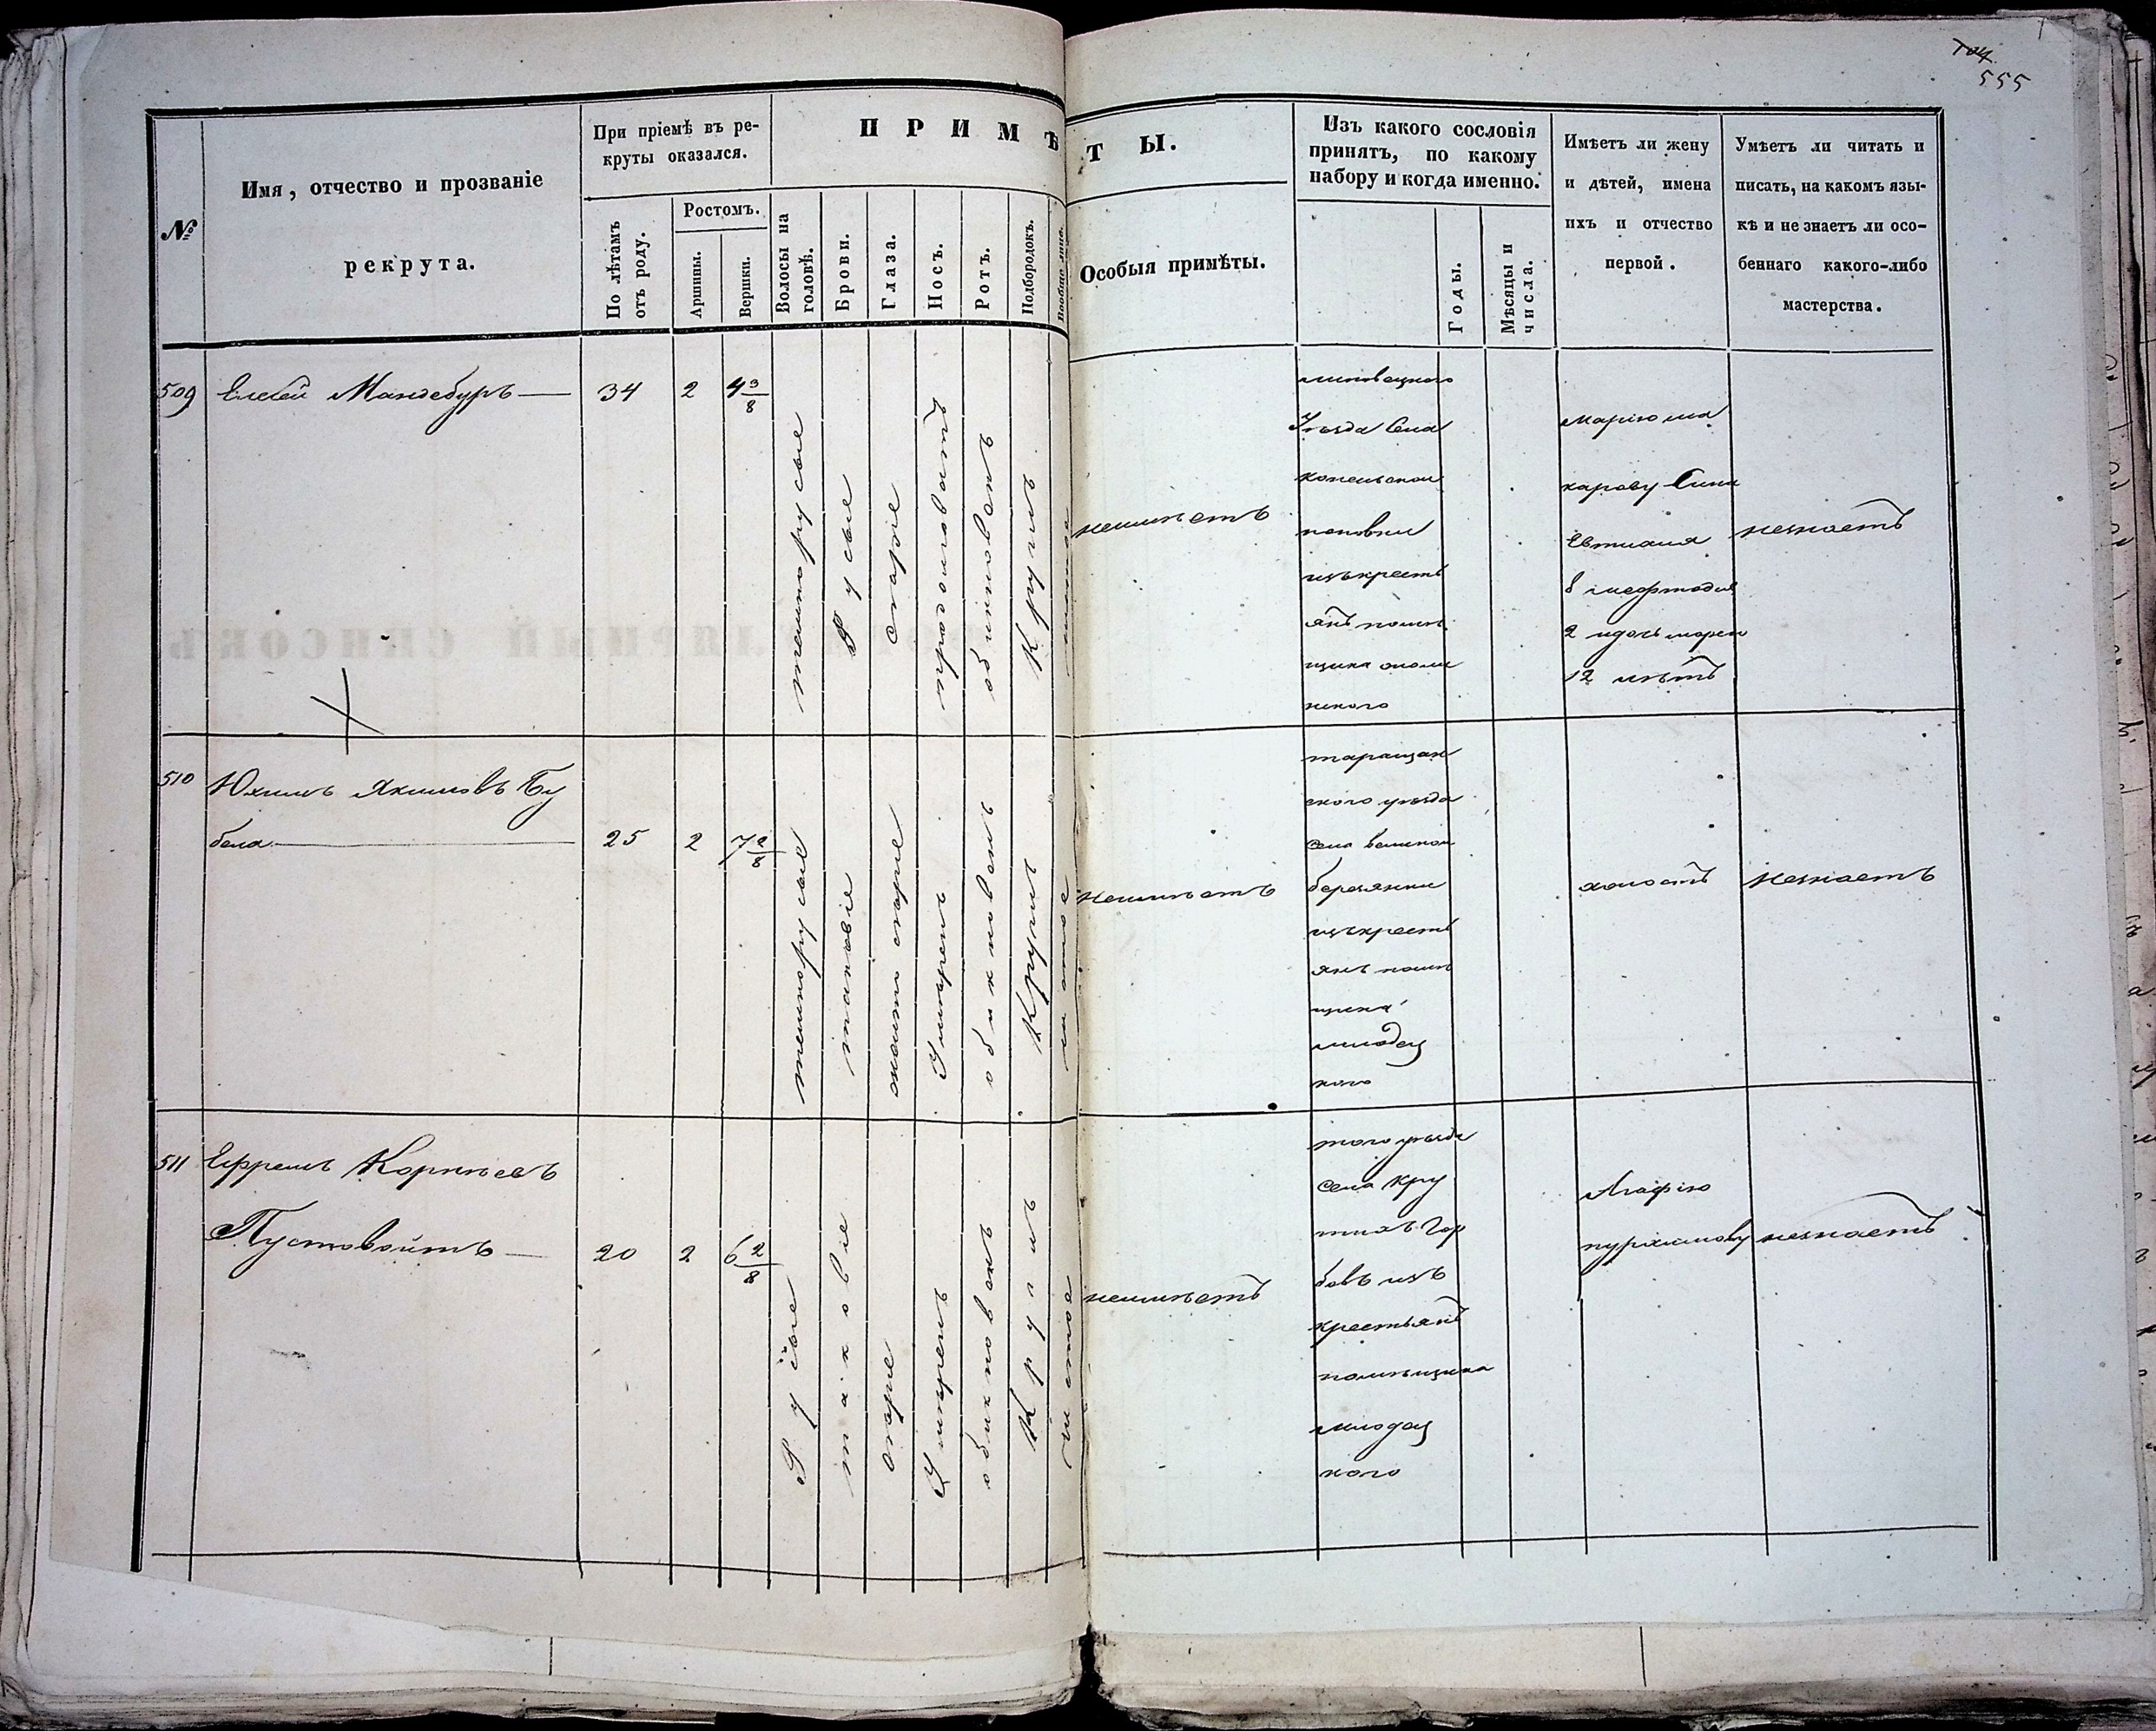 104
555
№
Имя, отчество и прозваніе
рекрута.
При пріемѣ въ ре-
круты оказался.
По лѣтамъ
отъ роду.
Ростомъ.
Аршины.
Вершки.
ПРИМѢТЫ.
Волосы на
головѣ.
Брови.
Глаза.
Носъ.
Ротъ.
Подбородокъ.
Вообще лица.
Особыя примѣты.
Изъ какого сословія
принятъ, по какому
набору и когда именно.
Годы.
Мѣсяцы и
числа.
Имѣетъ ли жену
и дѣтей, имена
ихъ и отчество
первой.
Умѣетъ ли читать и
писать, на какомъ язы-
кѣ и не знаетъ ли осо-
беннаго какого-либо
мастерства.
509
Елисей Мандебуръ
34
2
4 3/8
темнорусые
Русые
сѣрые
продолговатъ
обикновенъ
Круглъ
чистое
неимѣетъ
липовецкого
Уезда Села
конельской
поповки
изъ крестъ
янъ помѣ
щика
марію ма
карову Сини
8
2
12 лѣтъ
незнаетъ
510
Юхимъ Якимовъ Бу
бела
25
2
7 2/8
темнорусые
таковіе
жолто сѣрые
Умѣренъ
обикновенъ
Круглъ
чистое
Неимѣетъ
таращан
ского уезда
села великой
березянки
изъ крестъ
янъ помѣ
щика
млодец
кого
холостъ
Незнаетъ
511
Ефремъ Корнѣевъ
Пустовойтъ
20
2
6 2/8
Русые
таковіе
сѣрые
Умѣренъ
обикновенъ
Круглъ
чистое
неимѣетъ
того уезда
села Кру
тихъ Гор
бовъ изъ
крестьянъ
помѣщика
млодец
кого
Агафію
незнаетъ